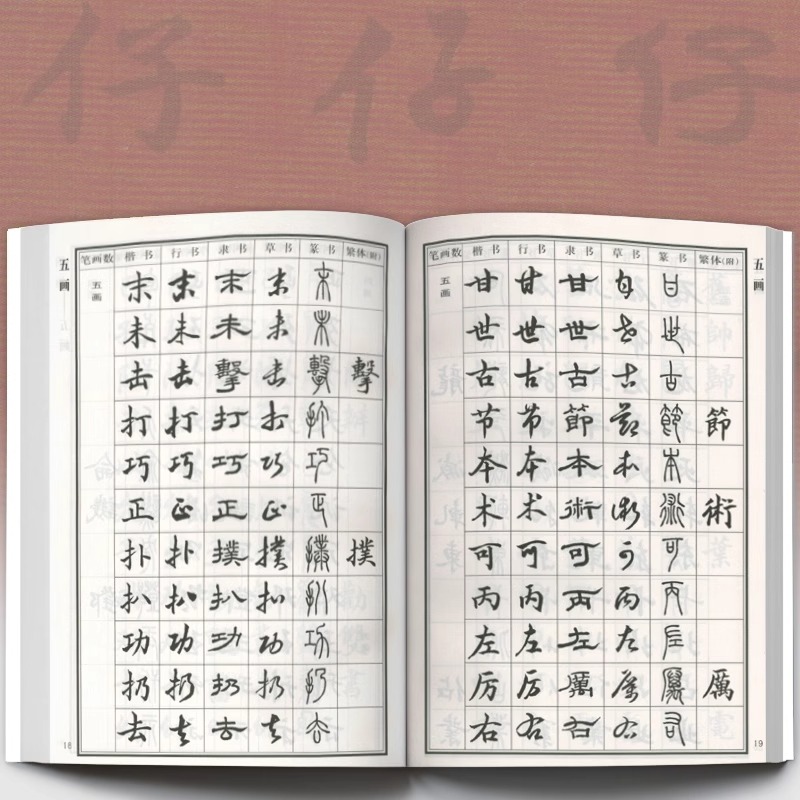 仔 仔 仔
五画
笔画数 楷书 行书 隶书 草书 篆书 繁体(附)
五画 末 末 末 末 末
未 未 未 未 未
击 击 擊 击 擊 擊
打 打 打 打 打
巧 巧 巧 巧 巧
正 正 正 正 正
扑 扑 撲 撲 撲 撲
扒 扒 扒 扒 扒
功 功 功 功 功
扔 扔 扔 扔 扔
去 去 去 去 去
18
笔画数 楷书 行书 隶书 草书 篆书 繁体(附)
五画 甘 甘 甘 甘 甘
世 世 世 世 世
古 古 古 古 古
节 节 節 節 節 節
本 本 本 本 本
术 术 術 術 術 術
可 可 可 可 可
丙 丙 丙 丙 丙
左 左 左 左 左
厉 厉 厲 厲 厲 厲
右 右 右 右 右
五画
19